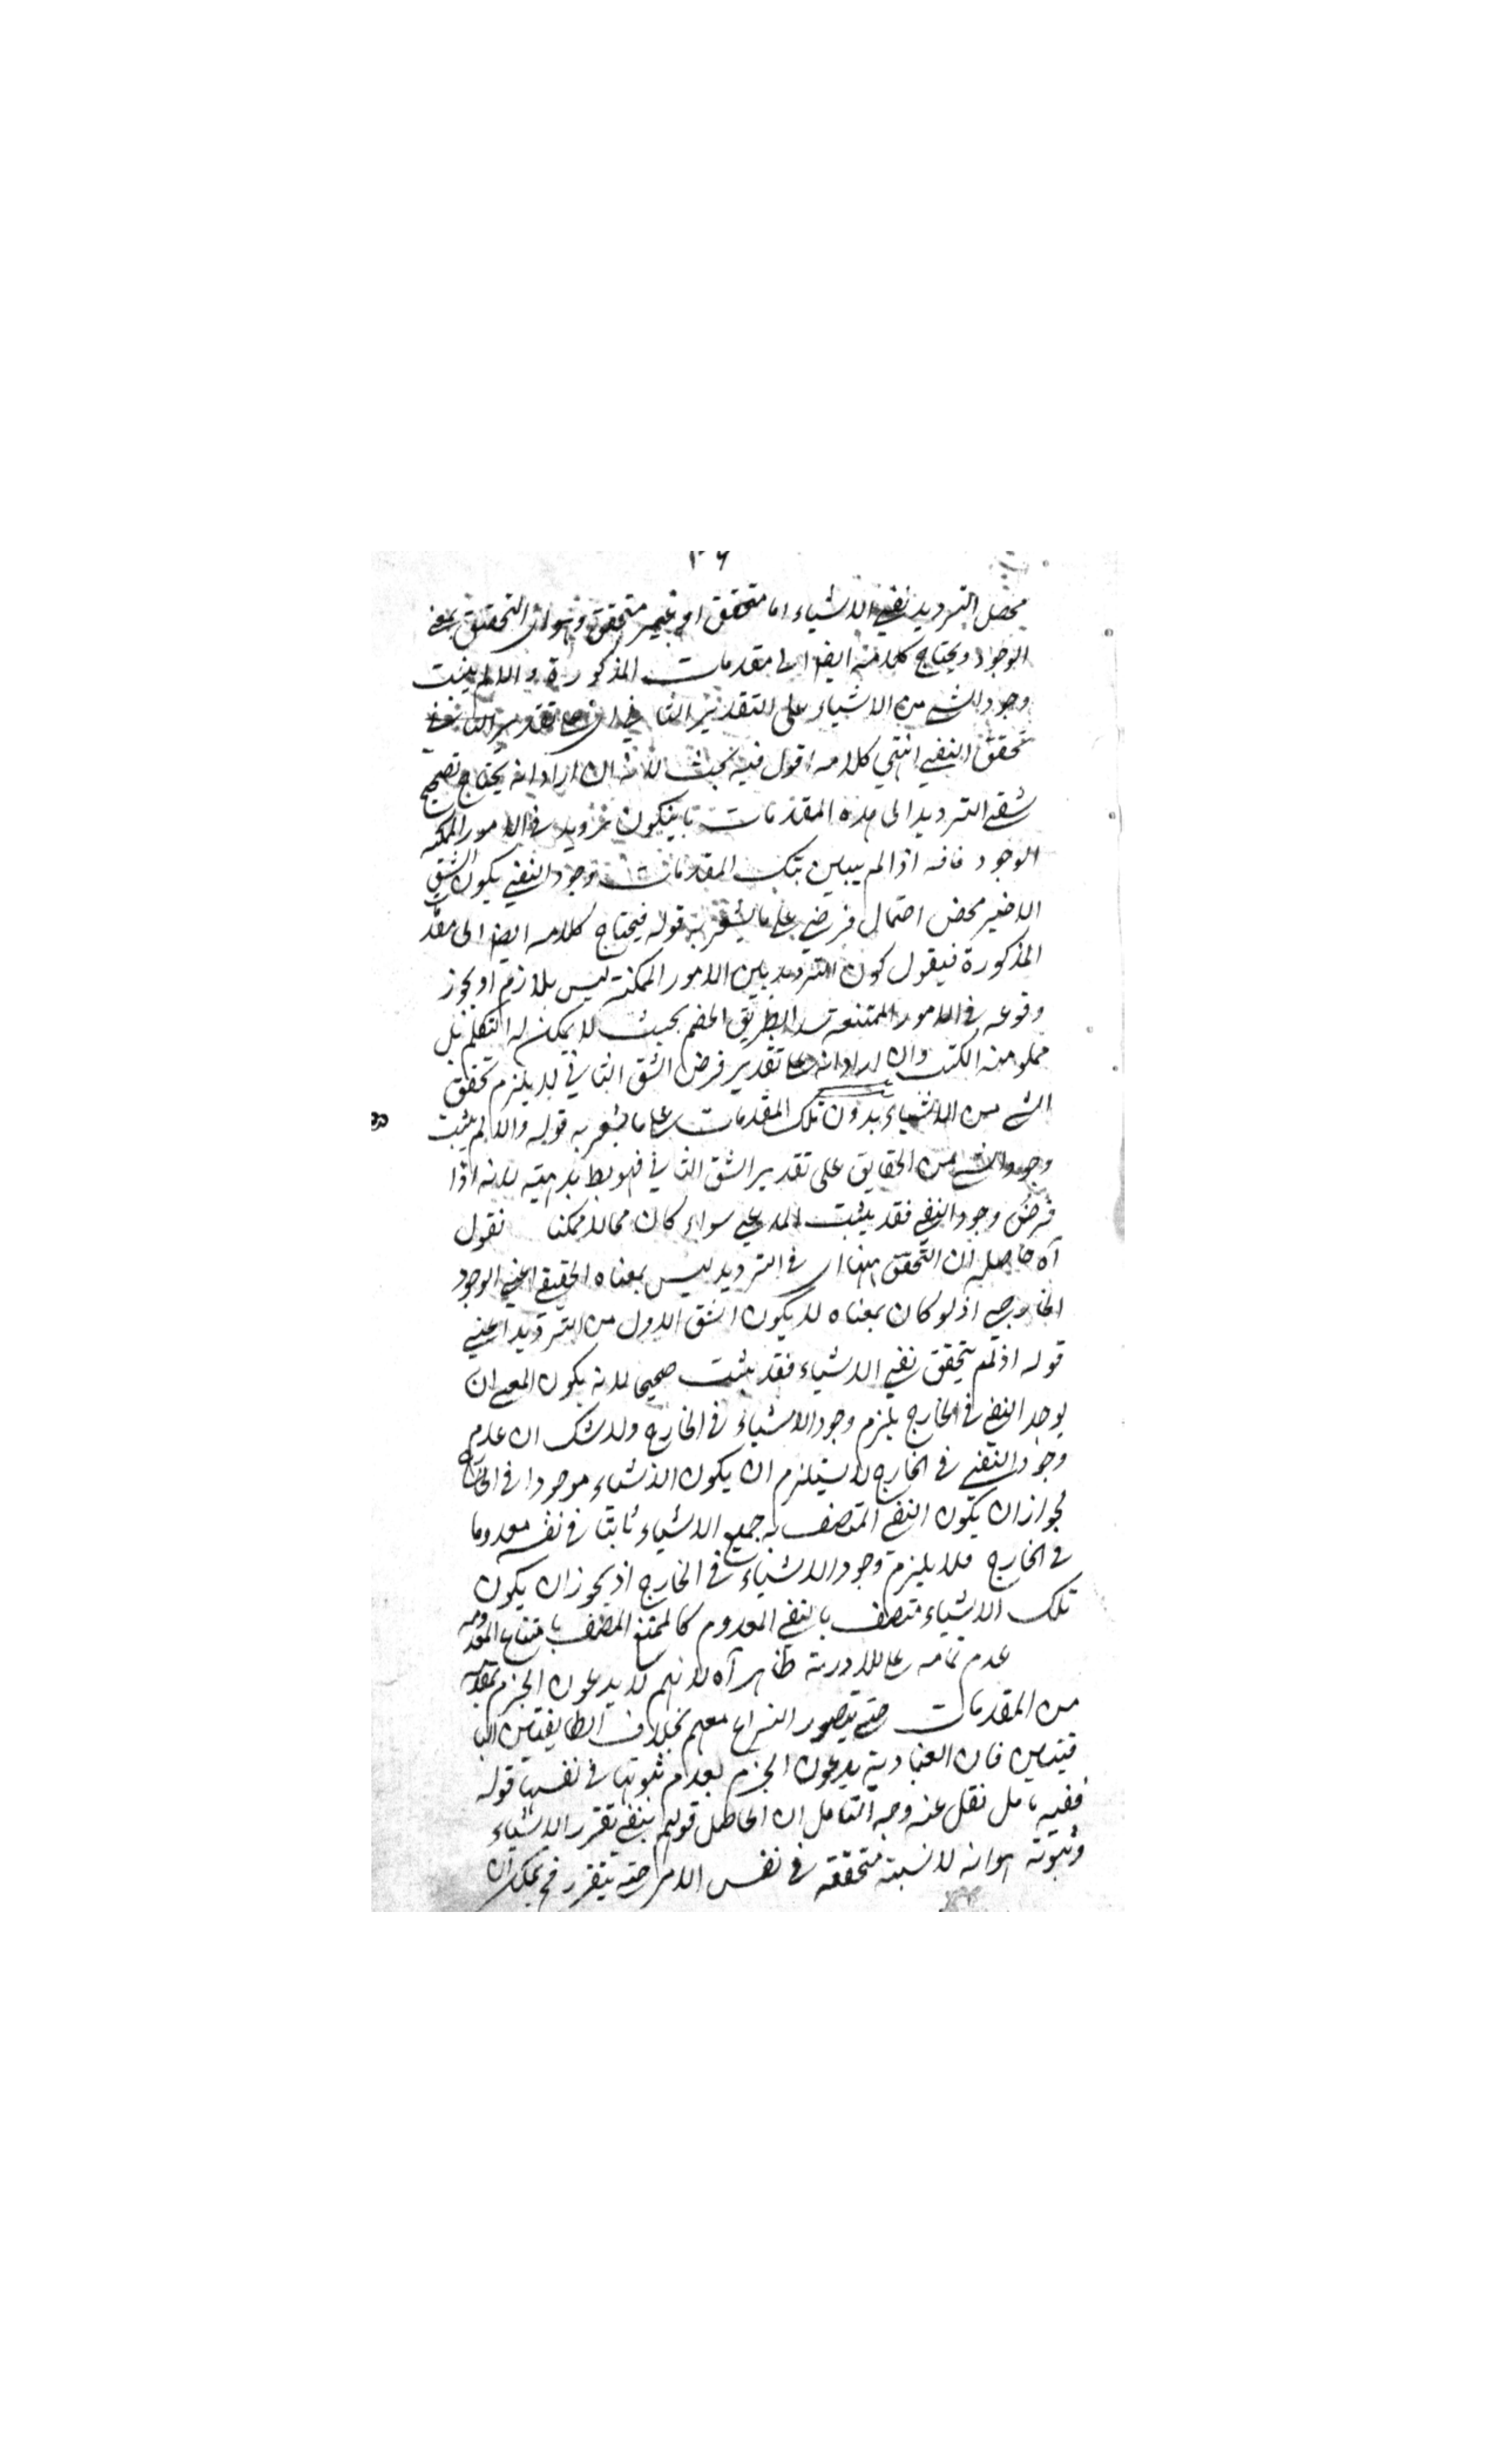 ٣٦
محصل الترديد نفي الاشياء اما متحقق او غير متحقق وهو ان التحقيق بمعنى
الوجود ويحتاج كلامه ايضا الى مقدمات المذكورة والا لم يثبت
وجود الشئ من الاشياء على التقدير الثاني اى على تقدير الثاني
تحقق النفي انتهى كلامه اقول فيه بحث لانه ان اراد انه يحتاج تصحيح
شقي الترديد الى هذه المقدمات بان يكون ترديد في الامور الممكنه
الوجود فانه اذا لم يبين بتلك المقدمات وجود النفي يكون الشق
الاخير محض احتمال فرضي على ما يشعر به قوله فيحتاج كلامه ايضا الى مقد
المذكورة فيقول كون الترديد بين الامور الممكنة ليس بلازم او يجوز
وقوعه في الامور الممتنعة سد الطريق الخصم بحيث لا يمكن له التكلم بل
مملو منه الكتب وان اراد انه على تقدير فرض الشق الثاني لا يلزم تحقق
الشئ من الاشياء بدون تلك المقدمات على ما يشعر به قوله والا لم يثبت
وجود الشئ من الحقايق على تقدير الشق الثاني فهو بط بديهته لانه اذا
فرض وجود النفي فقد يثبت المدعي سواء كان محالا ممكنا نقول
آه حاصله ان التحقق ههنا اى في الترديد ليس بمعناه الحقيقي اعني الوجود
الخارجي اذ لو كان بمعناه لا يكون الشق الاول من الترديد اعني
قوله اذ لم يتحقق نفي الاشياء فقد يثبت صحيحا لانه يكون المعنى ان
يوجد النفي في الخارج يلزم وجود الاشياء في الخارج ولا شك ان عدم
وجود النفي في الخارج لا يستلزم ان يكون الاشياء موجودا في الخارج
لجواز ان يكون النفي المتصف به جميع الاشياء ثابتا في نفسه معدوما
في الخارج فلا يلزم وجود الاشياء في الخارج اذ يجوز ان يكون
تلك الاشياء متصف بالنفي المعدوم كالممتنع المتصف بامتناع المعدومه
عدم تمامه على اللاادرية ظاهر آه لانهم لا يدعون الجزم بمقدمة
من المقدمات حتى يتصور النزاع معهم بخلاف الطايفتين البا
قيتين فان العنادية يدعون الجزم بعدم ثبوتها في نفسها قوله
ففيه تامل نقل عنه وجه التامل ان الحاصل قولهم بنفي تقرر الاشياء
وثبوته هو انه لا نسبة متحققه في نفس الامر حتى يتقرر فح يمكن ان